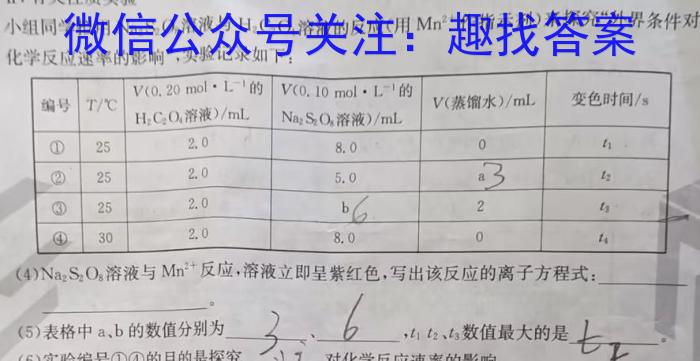 小组同学
溶液
用 Mn²⁺
界条件对
微信公众号关注：趣找答案
化学反应速率的影响，实验记录如下：
编号 T/℃ V(0.20 mol·L⁻¹的H₂C₂O₄溶液)/mL V(0.10 mol·L⁻¹的Na₂S₂O₈溶液)/mL V(蒸馏水)/mL 变色时间/s
① 25 2.0 8.0 0 t₁
② 25 2.0 5.0 a 3 t₂
③ 25 2.0 b 6 2 t₃
④ 30 2.0 8.0 0 t₄
(4)Na₂S₂O₈溶液与 Mn²⁺反应,溶液立即呈紫红色,写出该反应的离子方程式:
。
(5)表格中 a、b 的数值分别为 3 、 6 ,t₁、t₂、t₃数值最大的是 t₂ 。
(6)实验编号①④的目的是探究 对化学反应速率的影响